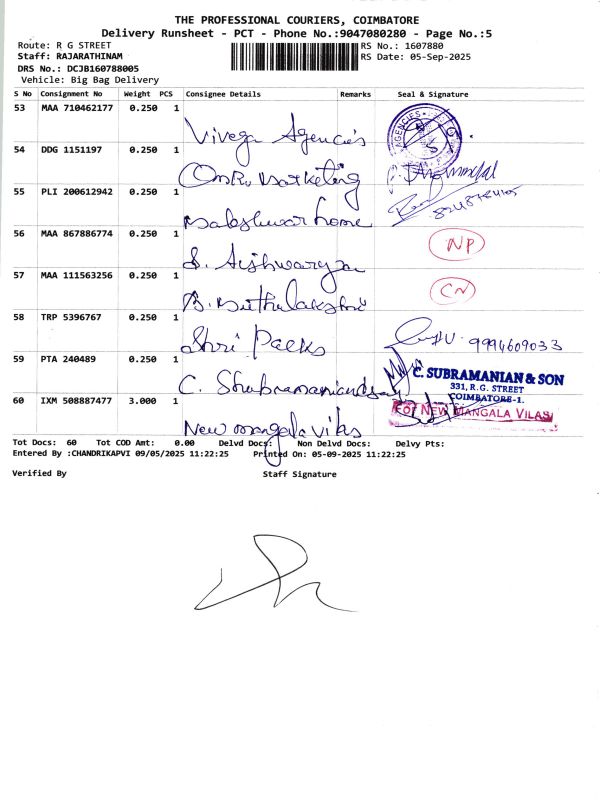 THE PROFESSIONAL COURIERS, COIMBATORE
Delivery Runsheet - PCT - Phone No.:9047080280 - Page No.:5
Route: R G STREET
Staff: RAJARATHINAM
DRS No.: DCJB160788005
Vehicle: Big Bag Delivery
RS No.: 1607880
RS Date: 05-Sep-2025
S No Consignment No Weight PCS Consignee Details Remarks Seal & Signature
53 MAA 710462177 0.250 1 Vivega Agencies AGENCIES
54 DDG 1151197 0.250 1 Marketing
55 PLI 200612942 0.250 1 home
56 MAA 867886774 0.250 1 S. Aishwarya NP
57 MAA 111563256 0.250 1 B. CN
58 TRP 5396767 0.250 1 Shri Packs 9994609033
59 PTA 240489 0.250 1 C. C. SUBRAMANIAN & SON
331, R.G. STREET
COIMBATORE-1.
60 IXM 508887477 3.000 1 New Mangala Vilas For NEW MANGALA VILAS
Tot Docs: 60 Tot COD Amt: 0.00 Delvd Docs: Non Delvd Docs: Delvy Pts:
Entered By :CHANDRIKAPVI 09/05/2025 11:22:25 Printed On: 05-09-2025 11:22:25
Verified By Staff Signature